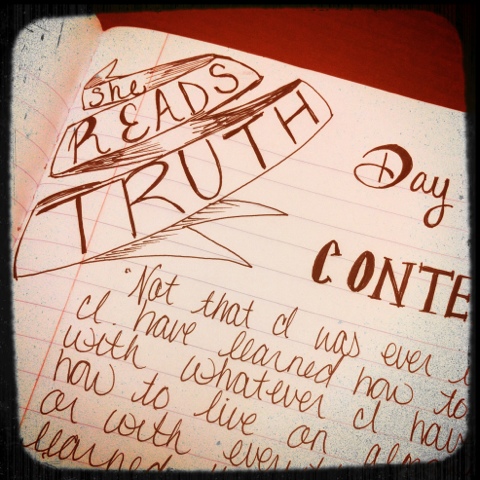 she
READS
TRUTH
Day
CONTE
"Not that I was ever
I have learned how to
with whatever I hav
how to live on almo
or with
learned